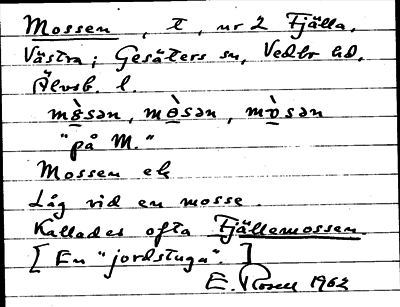 Mossen, t, nr 2 Fjälla,
Västra; Gesäters sn, Vedbo hd,
Älvsb. l.
mɞ̀sən, mɵ̀sən, mʊ̀sən
"på M."
Mossen ek
Låg vid en mosse.
Kallades ofta Fjällemossen.
[En "jordstuga".]
E. Rosell 1962